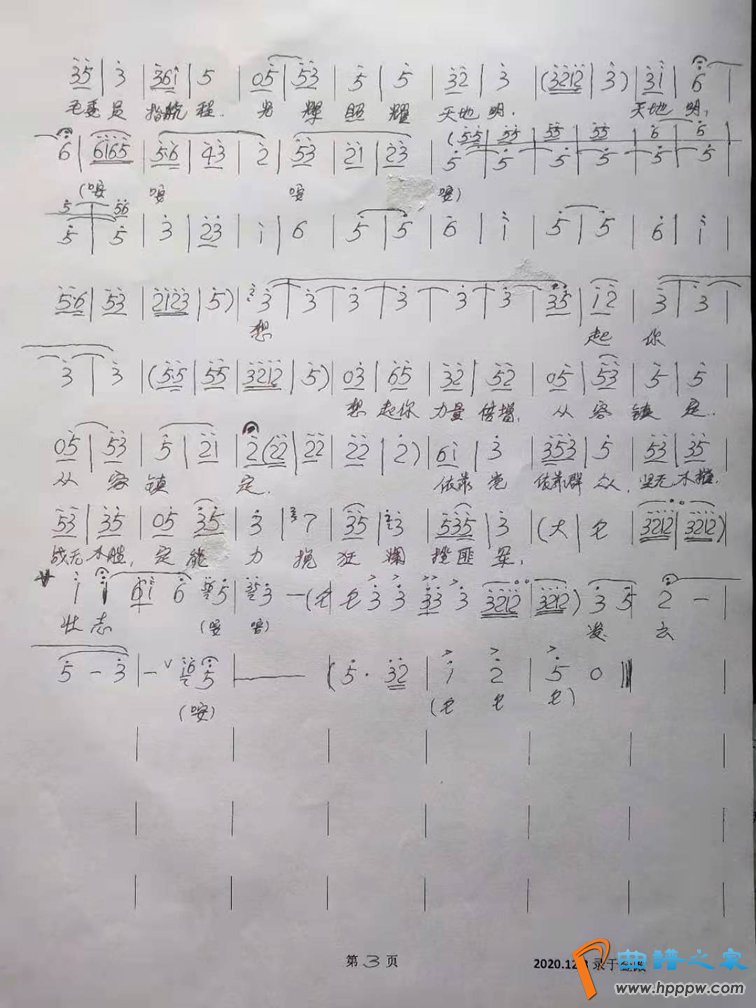 35 | 3 | 361 | 5 | 05 | 53 | 5 | 5 | 32 | 3 | (3212 | 3) | 31 | 6
毛委员 指航程. 光辉照耀 天地明. 天地明,
6 | (6165 | 56 | 43 | 2 | 53 | 21 | 23 | 5 5 5 5 5 5
(嗳 嗳 嗳 嗳)
5 | 5 | 3 | 23 | 1 | 6 | 5 | 5 | 6 | 1 | 5 | 5 | 6 | 1
56 | 53 | 2123 | 5) | 3 | 3 | 3 | 3 | 3 | 3 | 35 | 12 | 3 | 3
想 起你
3 | 3 | (55 | 55 | 3212 | 5) | 03 | 65 | 32 | 52 | 05 | 53 | 5 | 5
想起你 力量倍增, 从容镇定..
05 | 53 | 5 | 21 | 2 (22 | 22 | 22 | 2) | 61 | 3 | 353 | 5 | 53 | 35
从容镇定. 依靠党 依靠群众, 战无不胜.
53 | 35 | 05 | 35 | 3 | 7 | 35 | 3 | 535 | 3 | (大 七 | 3212 | 3212)
战无不胜, 定能力挽狂澜挫匪军,
1 1 61 6 5 | 3 — (七 | 七 3 3 33 3 3212 | 3212) 3 5 | 2 —
壮志 (嗳 嗳)
5 — 3 | — 5 | — — | (5 · 32 | 1 2 5 0
(嗳) (七 七 七)
第 3 页
2020.12. 录于
曲谱之家
www.hppw.com